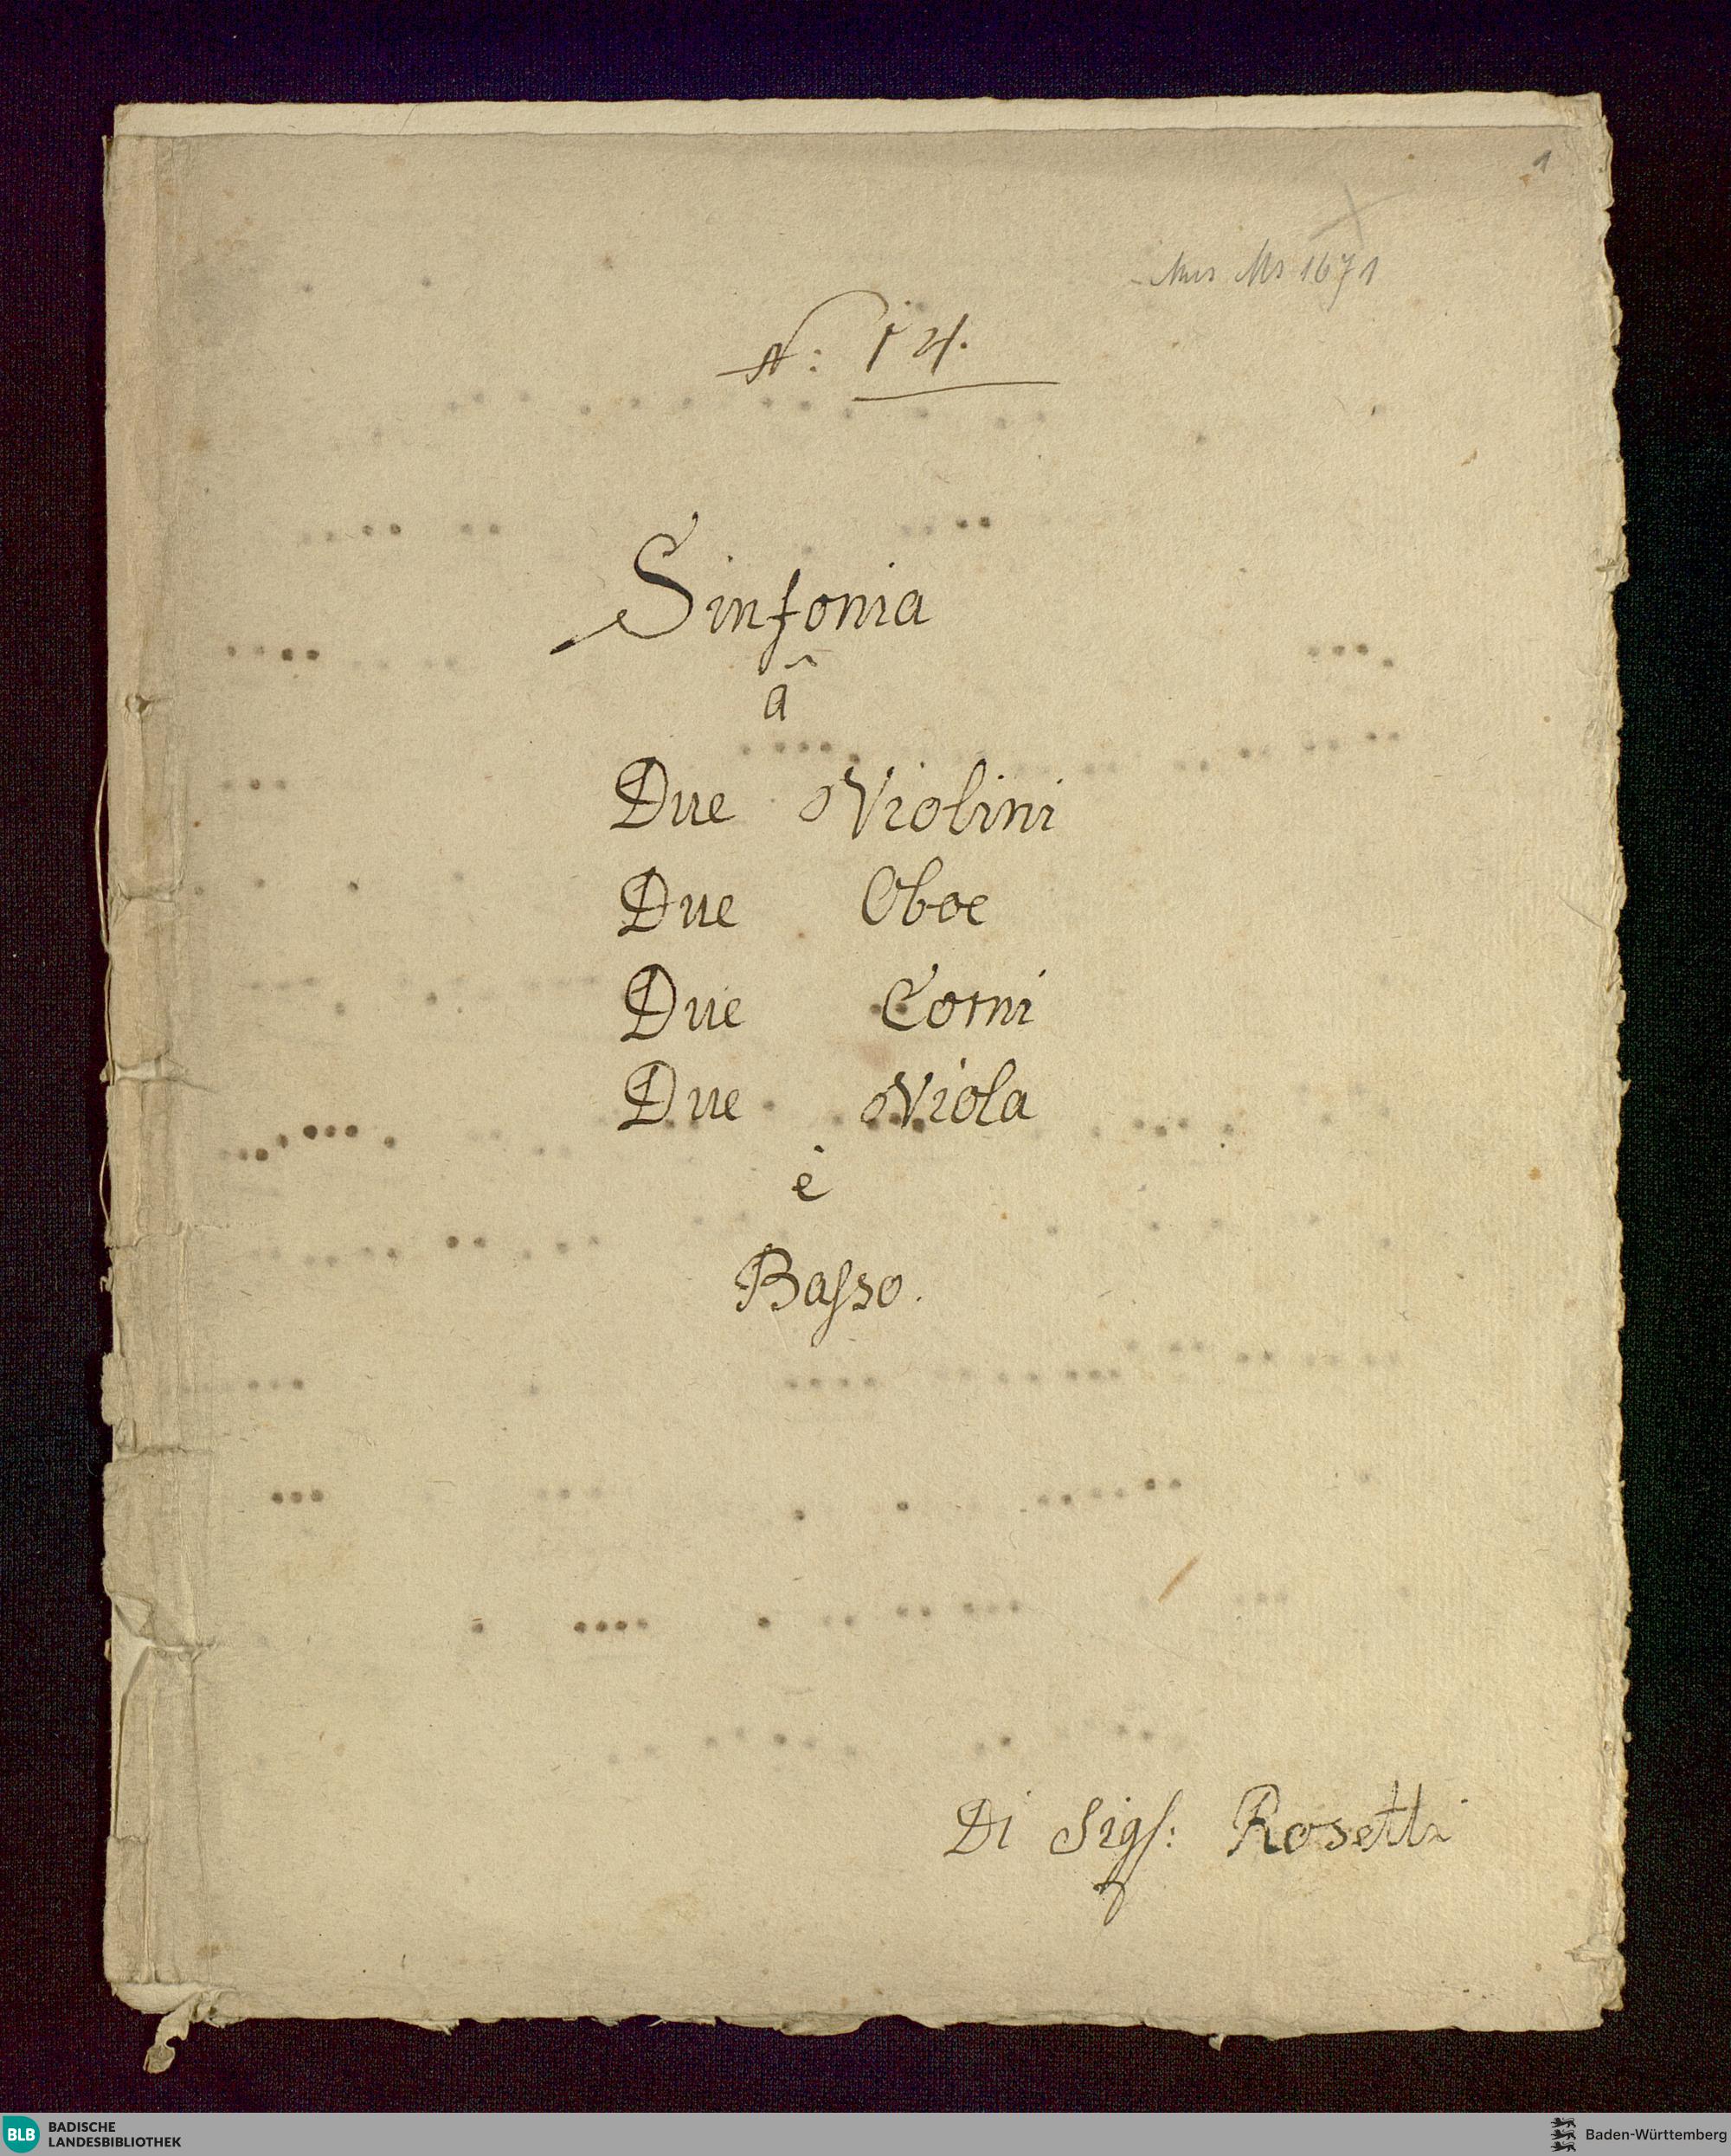 1
Mus Ms 1671
N: 14.
Sinfonia
â
Due Violini
Due Oboe
Due Corni
Due Viola
è
Baſso.
Di Sigʃ: Rosetti
BLB BADISCHE
LANDESBIBLIOTHEK
Baden-Württemberg